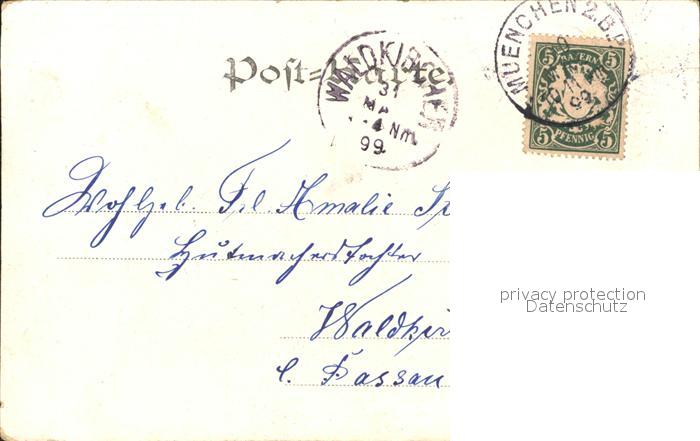 Post-Karte
WALDKIRCHEN
31
MAI
4 Nm.
99
MUENCHEN 2.B.P.
99
5 BAYERN 5
5 PFENNIG 5
Wohlgeb. Frl Amalie
Hutmacherstochter
Waldkir
b. Passau
privacy protection
Datenschutz